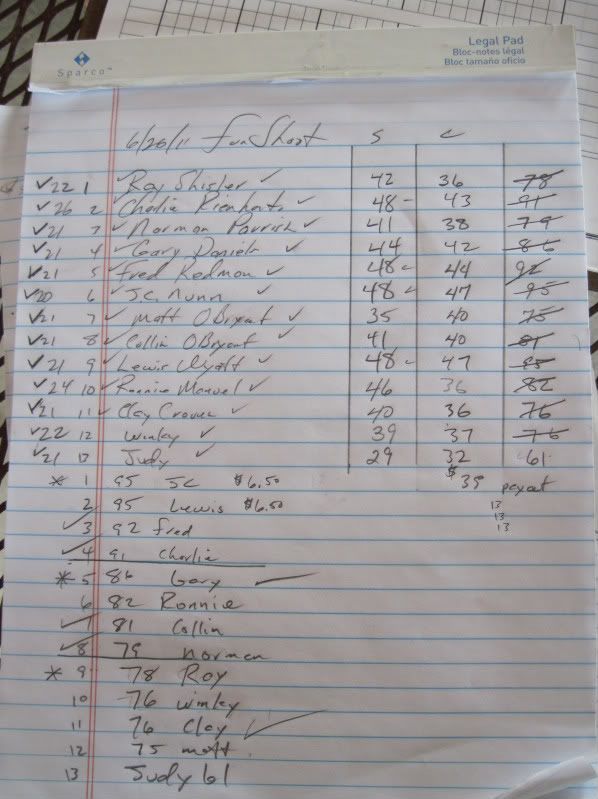 Sparco™
Legal Pad
Bloc-notes légal
Bloc tamaño oficio
6/26/11 Fun Shoot S C
✓22 1 ✓Roy Shisler ✓ 42 36 78
✓26 2 ✓Charlie ✓ 48- 43 91
✓21 3 ✓Norman Parrish ✓ 41 38 79
✓21 4 ✓Gary Daniels ✓ 44 42 86
✓21 5 ✓Fred Redmon ✓ 48- 44 92
✓20 6 ✓J.C. Nunn ✓ 48- 47 95
✓21 7 ✓Matt OBryant ✓ 35 40 75
✓21 8 ✓Collin OBryant ✓ 41 40 81
✓21 9 ✓Lewis Wyatt ✓ 48- 47 95
✓24 10 ✓Ronnie Manuel ✓ 46 36 82
✓21 11 ✓Clay ✓ 40 36 76
✓22 12 Winky ✓ 39 37 76
✓21 13 Judy ✓ 29 32 61
* 1 95 JC $6.50 $39 payout
2 95 Lewis $6.50 13
13
✓3 92 Fred 13
✓4 91 Charlie
* 5 86 Gary
6 82 Ronnie
✓7 81 Collin
✓8 79 Norman
* 9 78 Roy
10 76 Winky
11 76 Clay ✓
12 75 Matt
13 Judy 61